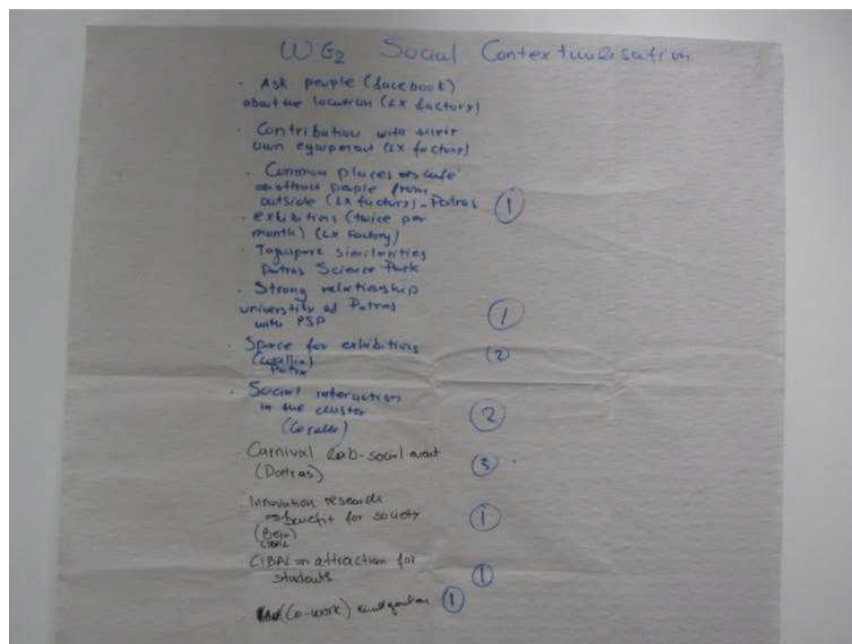 WG2 Social Contextualisation
· Ask people (facebook)
about the location (LX factory)
· Contribution with their
own equipment (LX factory)
· Common places cafe
⇒ attract people from
outside (LX factory) - Patras ①
· exhibitions (twice per
month) (LX Factory)
· Taguspark similarities
Patras Science Park
· Strong relationship
university of Patras
with PSP ①
· Space for exhibitions ②
· Social interaction
in the cluster ②
Carnival Lab-social event
(Patras) ③
Innovation research
⇒ benefit for society ①
(Beja)
CEBAL
CIBAL attraction for
students ①
(Co-work) ①